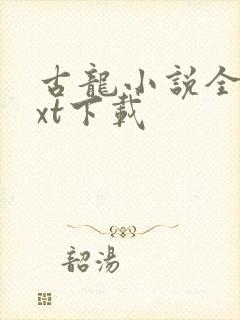 古龍小說全
xt下載
韶湯